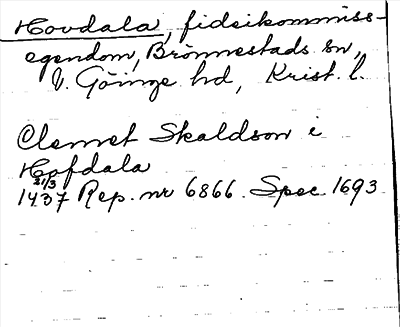 Hovdala, fideikommiss-
egendom, Brönnestads sn,
V. Göinge hd, Krist. l.
Clemet Skaldson i
Hofdala
21/3
1437 Rep. nr 6866. Spec 1693